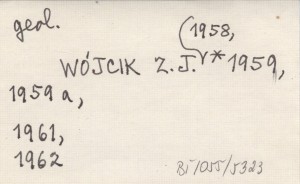 geol.
1958,
WÓJCIK Z.J. * 1959,
1959a,
1961,
1962
Bi/055/5323